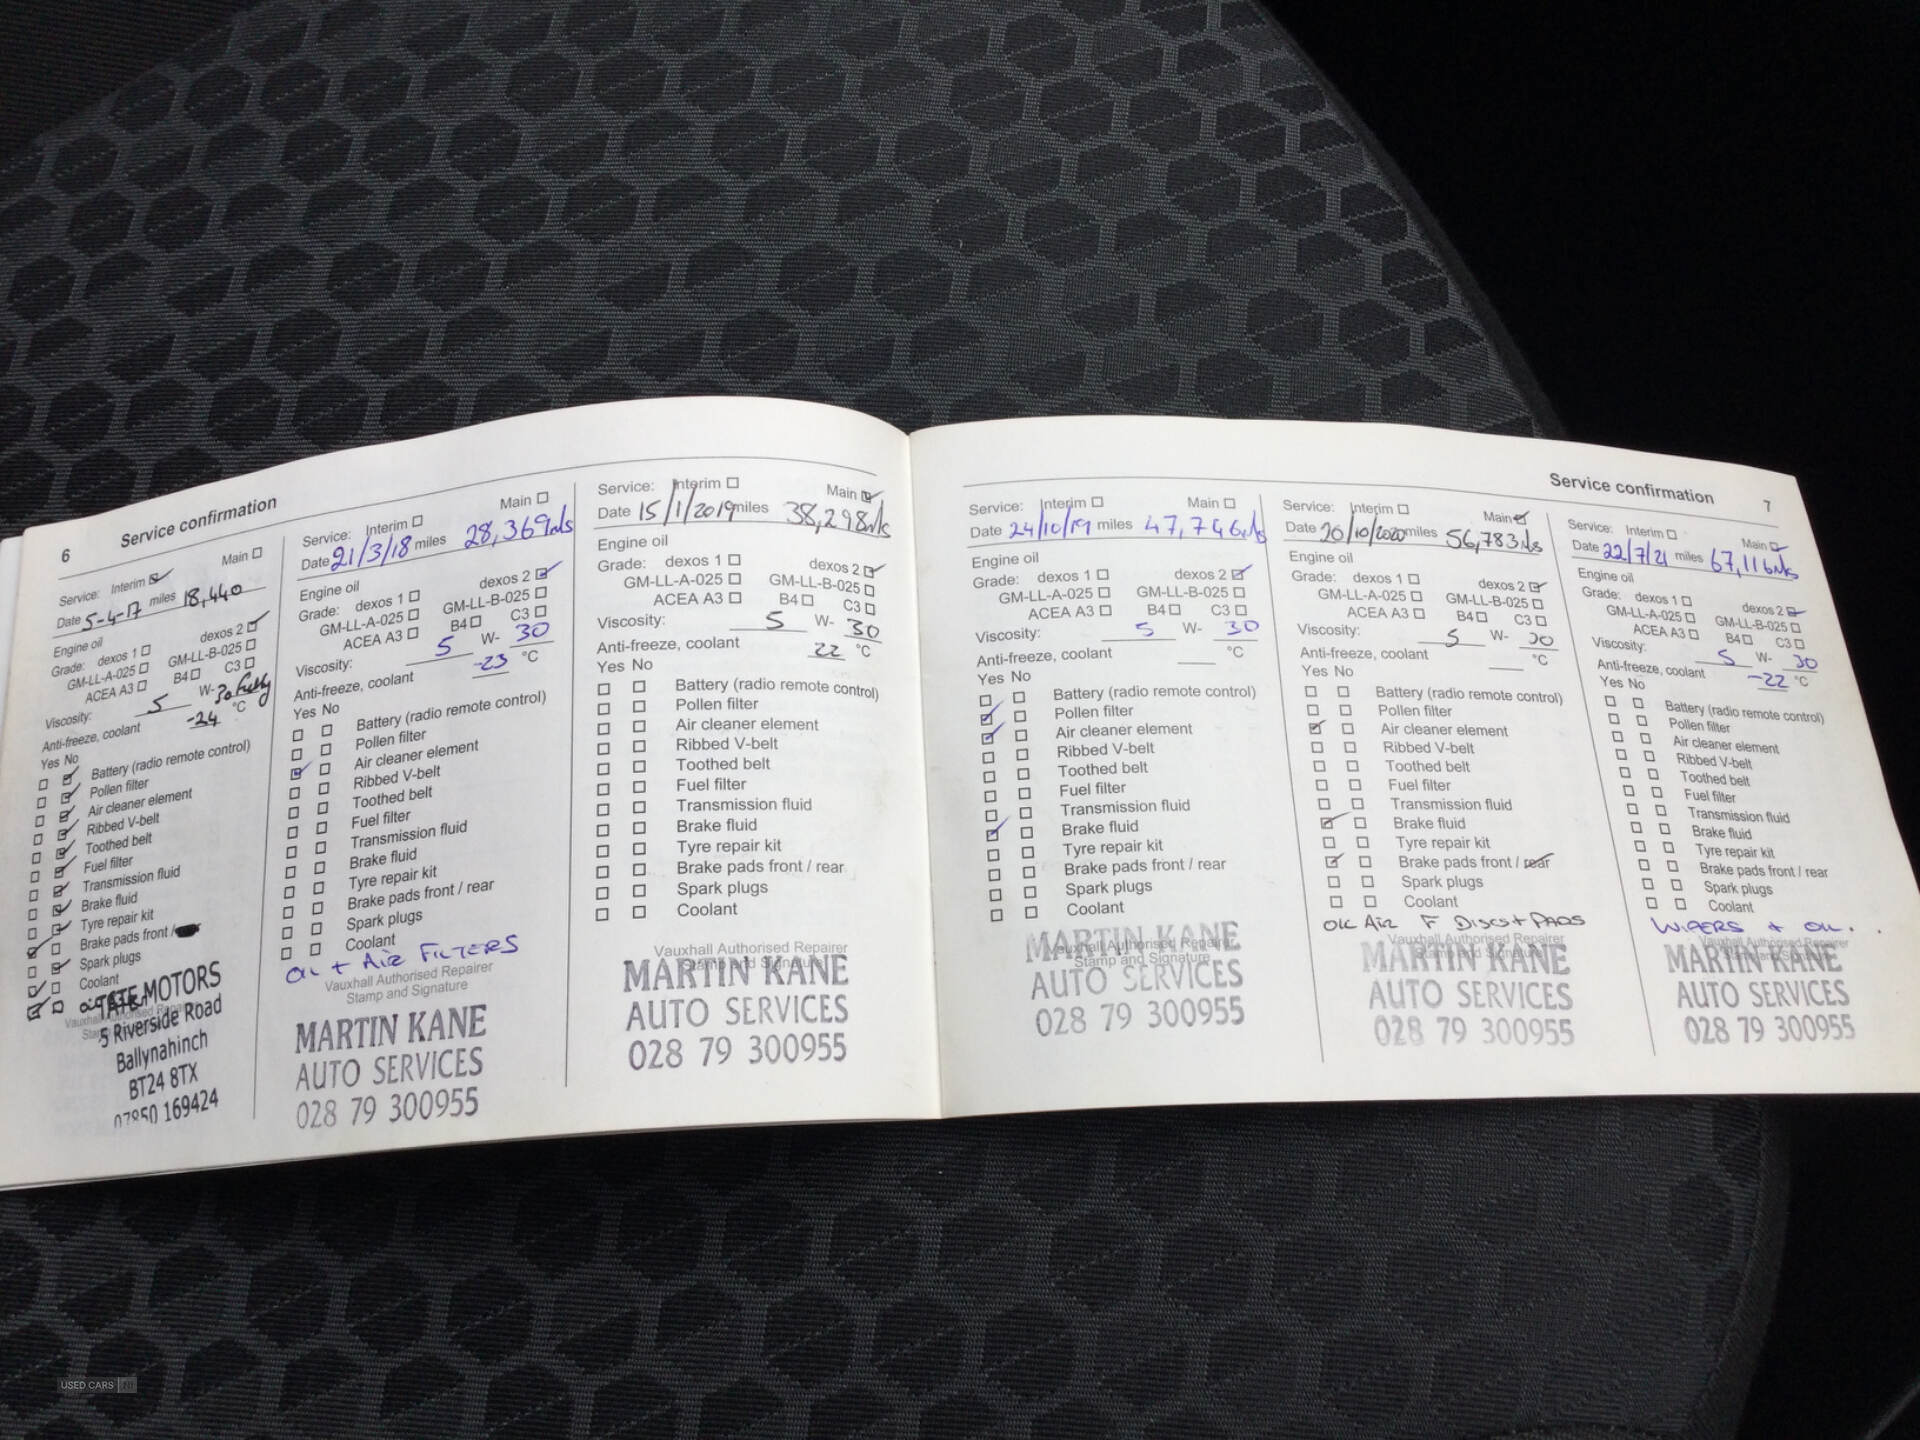 6 Service confirmation
Service: Interim Main
Date 5-4-17 miles 18,440
Engine oil
Grade: dexos 1 dexos 2
GM-LL-A-025 GM-LL-B-025
ACEA A3 B4 C3
Viscosity: 5 W- 30 fully
Anti-freeze, coolant -24 °C
Yes No
Battery (radio remote control)
Pollen filter
Air cleaner element
Ribbed V-belt
Toothed belt
Fuel filter
Transmission fluid
Brake fluid
Tyre repair kit
Brake pads front /
Spark plugs
Coolant
Vauxhall Authorised Repairer
TATE MOTORS
5 Riverside Road
Ballynahinch
BT24 8TX
07850 169424
Service: Interim Main
Date 21/3/18 miles 28,369mls
Engine oil
Grade: dexos 1 dexos 2
GM-LL-A-025 GM-LL-B-025
ACEA A3 B4 C3
Viscosity: 5 W- 30
Anti-freeze, coolant -23 °C
Yes No
Battery (radio remote control)
Pollen filter
Air cleaner element
Ribbed V-belt
Toothed belt
Fuel filter
Transmission fluid
Brake fluid
Tyre repair kit
Brake pads front / rear
Spark plugs
Coolant
OIL + AIR FILTERS
Vauxhall Authorised Repairer
Stamp and Signature
MARTIN KANE
AUTO SERVICES
028 79 300955
Service: Interim Main
Date 15/1/2019 miles 38,298mls
Engine oil
Grade: dexos 1 dexos 2
GM-LL-A-025 GM-LL-B-025
ACEA A3 B4 C3
Viscosity: 5 W- 30
Anti-freeze, coolant 22 °C
Yes No
Battery (radio remote control)
Pollen filter
Air cleaner element
Ribbed V-belt
Toothed belt
Fuel filter
Transmission fluid
Brake fluid
Tyre repair kit
Brake pads front / rear
Spark plugs
Coolant
Vauxhall Authorised Repairer
Stamp and Signature
MARTIN KANE
AUTO SERVICES
028 79 300955
Service confirmation 7
Service: Interim Main
Date 24/10/19 miles 47,746mls
Engine oil
Grade: dexos 1 dexos 2
GM-LL-A-025 GM-LL-B-025
ACEA A3 B4 C3
Viscosity: 5 W- 30
Anti-freeze, coolant °C
Yes No
Battery (radio remote control)
Pollen filter
Air cleaner element
Ribbed V-belt
Toothed belt
Fuel filter
Transmission fluid
Brake fluid
Tyre repair kit
Brake pads front / rear
Spark plugs
Coolant
Vauxhall Authorised Repairer
Stamp and Signature
MARTIN KANE
AUTO SERVICES
028 79 300955
Service: Interim Main
Date 20/10/2020 miles 56,783mls
Engine oil
Grade: dexos 1 dexos 2
GM-LL-A-025 GM-LL-B-025
ACEA A3 B4 C3
Viscosity: 5 W- 30
Anti-freeze, coolant °C
Yes No
Battery (radio remote control)
Pollen filter
Air cleaner element
Ribbed V-belt
Toothed belt
Fuel filter
Transmission fluid
Brake fluid
Tyre repair kit
Brake pads front / rear
Spark plugs
Coolant
OIL AIR F DISCS + PADS
Vauxhall Authorised Repairer
Stamp and Signature
MARTIN KANE
AUTO SERVICES
028 79 300955
Service: Interim Main
Date 22/7/21 miles 67,116mls
Engine oil
Grade: dexos 1 dexos 2
GM-LL-A-025 GM-LL-B-025
ACEA A3 B4 C3
Viscosity: 5 W- 30
Anti-freeze, coolant -22 °C
Yes No
Battery (radio remote control)
Pollen filter
Air cleaner element
Ribbed V-belt
Toothed belt
Fuel filter
Transmission fluid
Brake fluid
Tyre repair kit
Brake pads front / rear
Spark plugs
Coolant
WIPERS + OIL.
Vauxhall Authorised Repairer
Stamp and Signature
MARTIN KANE
AUTO SERVICES
028 79 300955
USED CARS NI